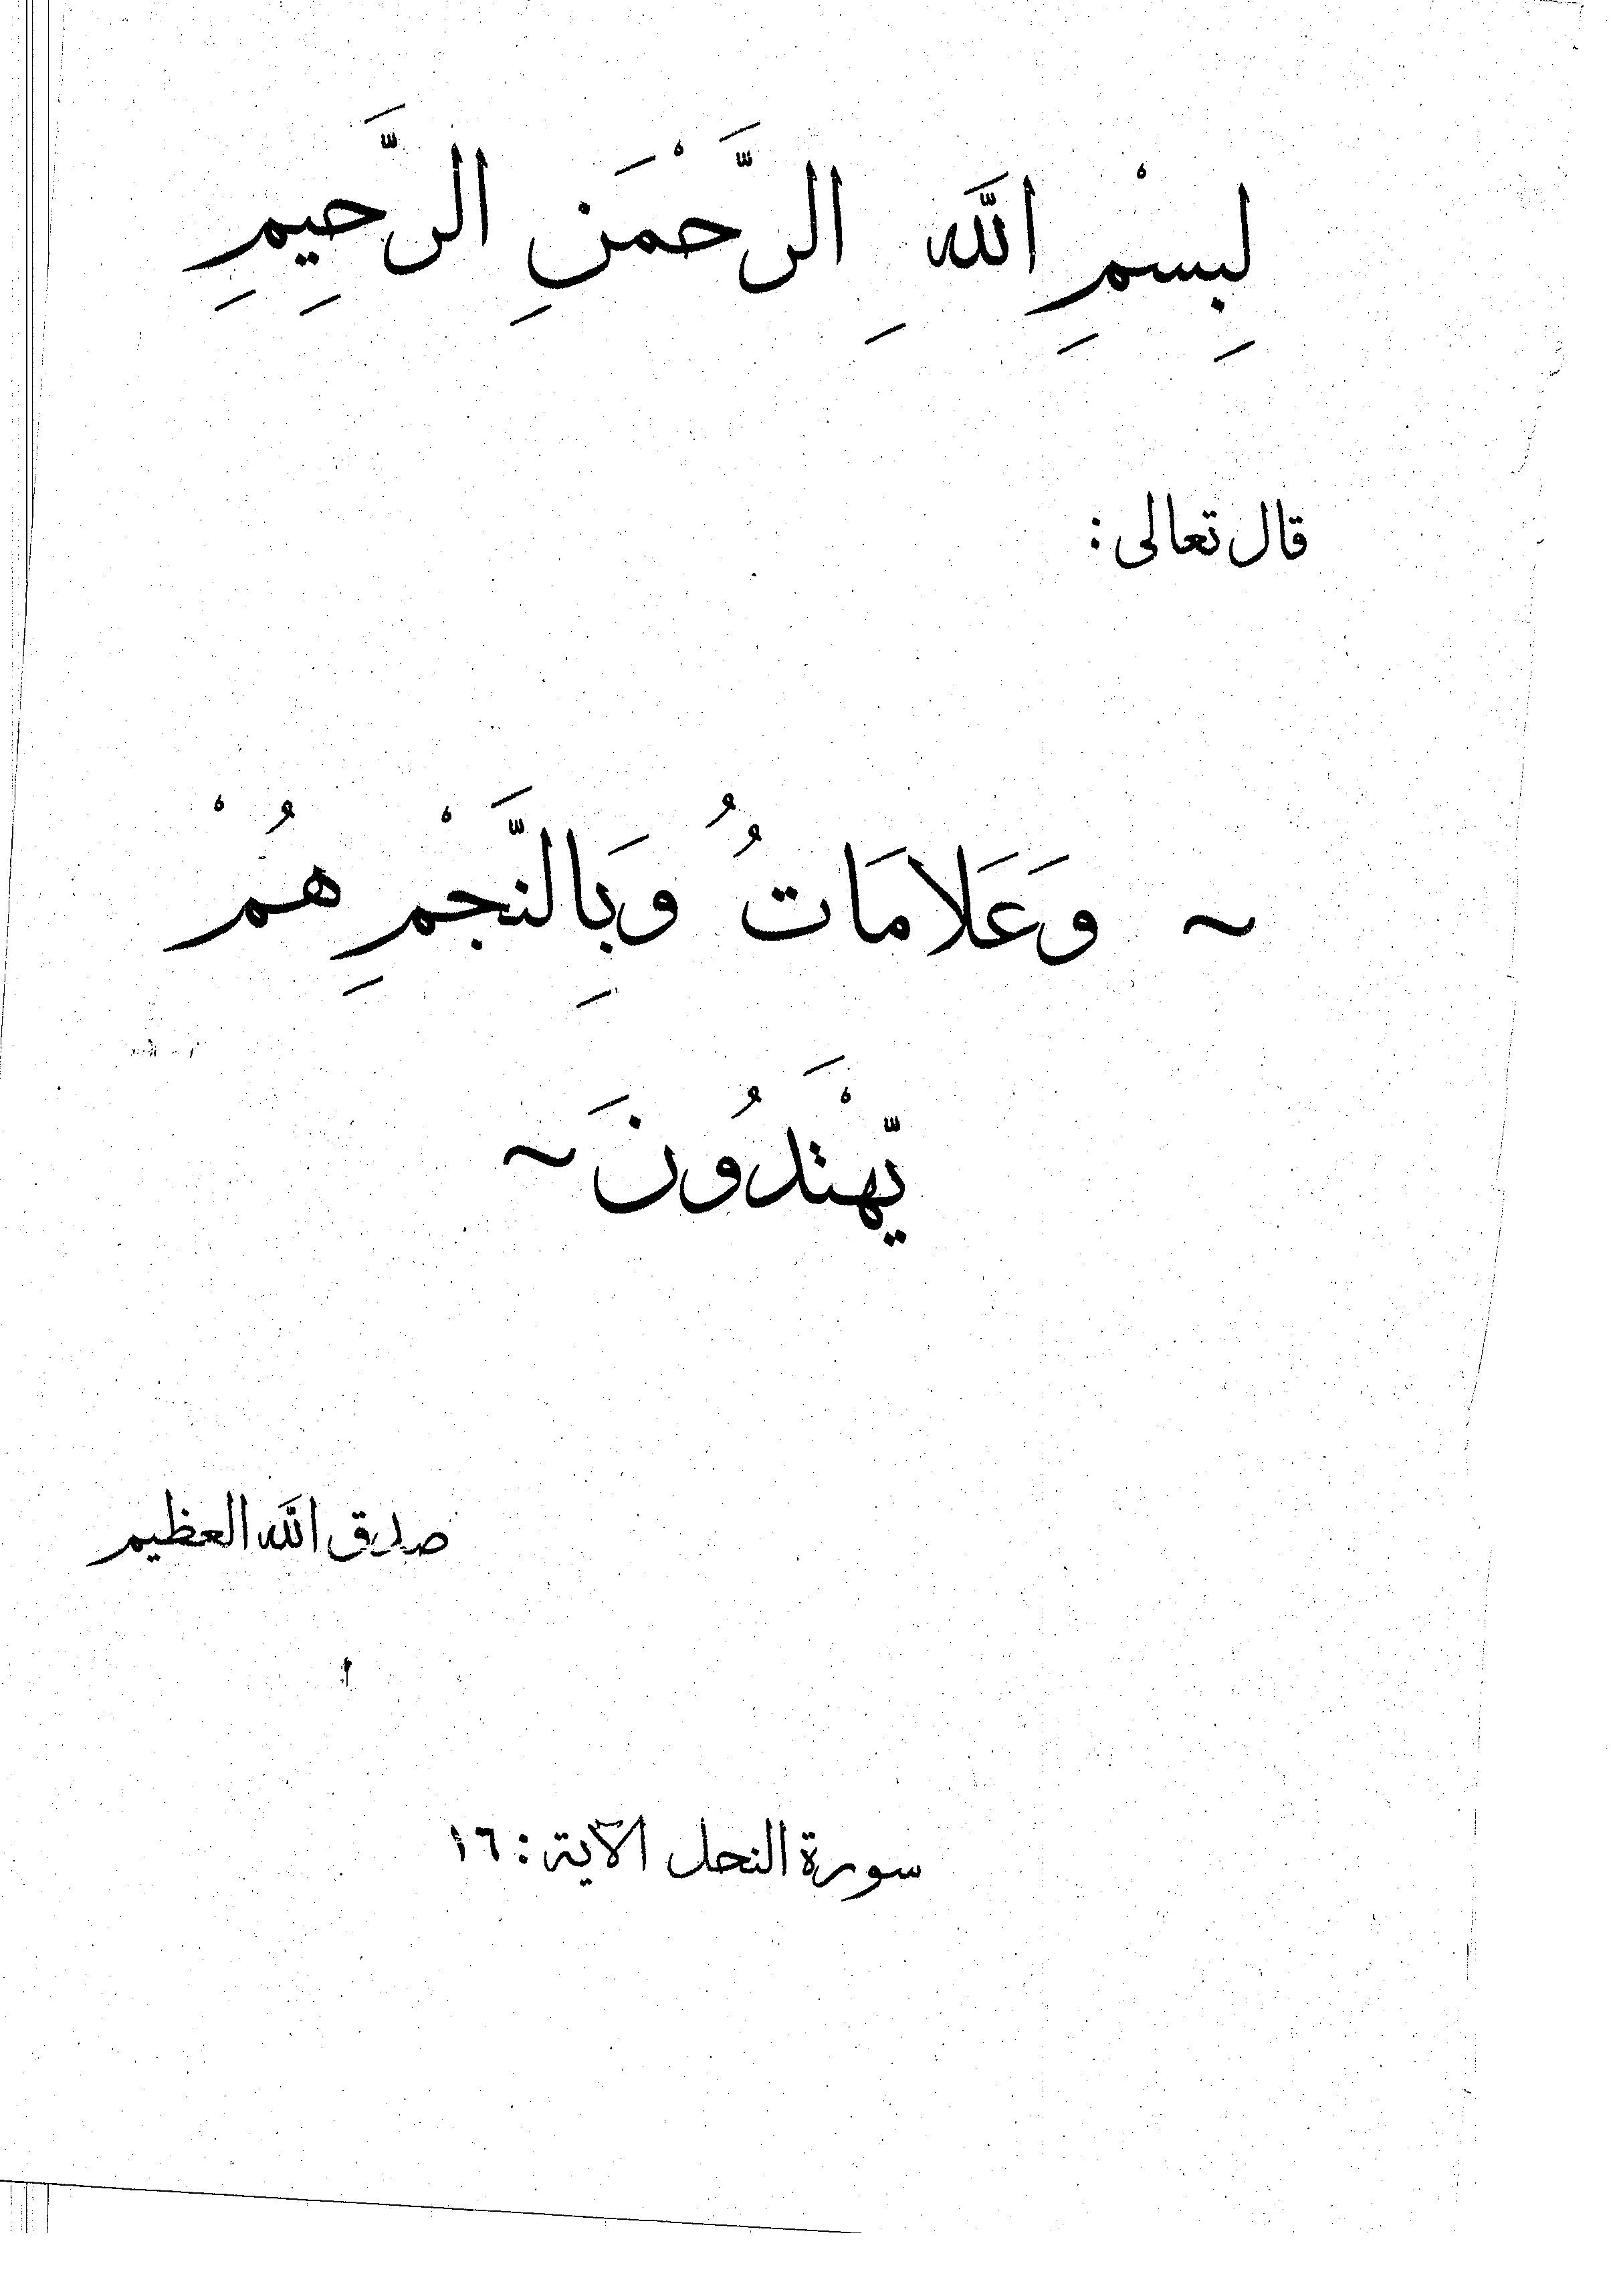 بِسْمِ اللَّهِ الرَّحْمَنِ الرَّحِيمِ
قال تعالى :
~ وَعَلَامَاتٌ وَبِالنَّجْمِ هُمْ
يَهْتَدُونَ ~
صدق الله العظيم
سورة النحل الآية : ١٦